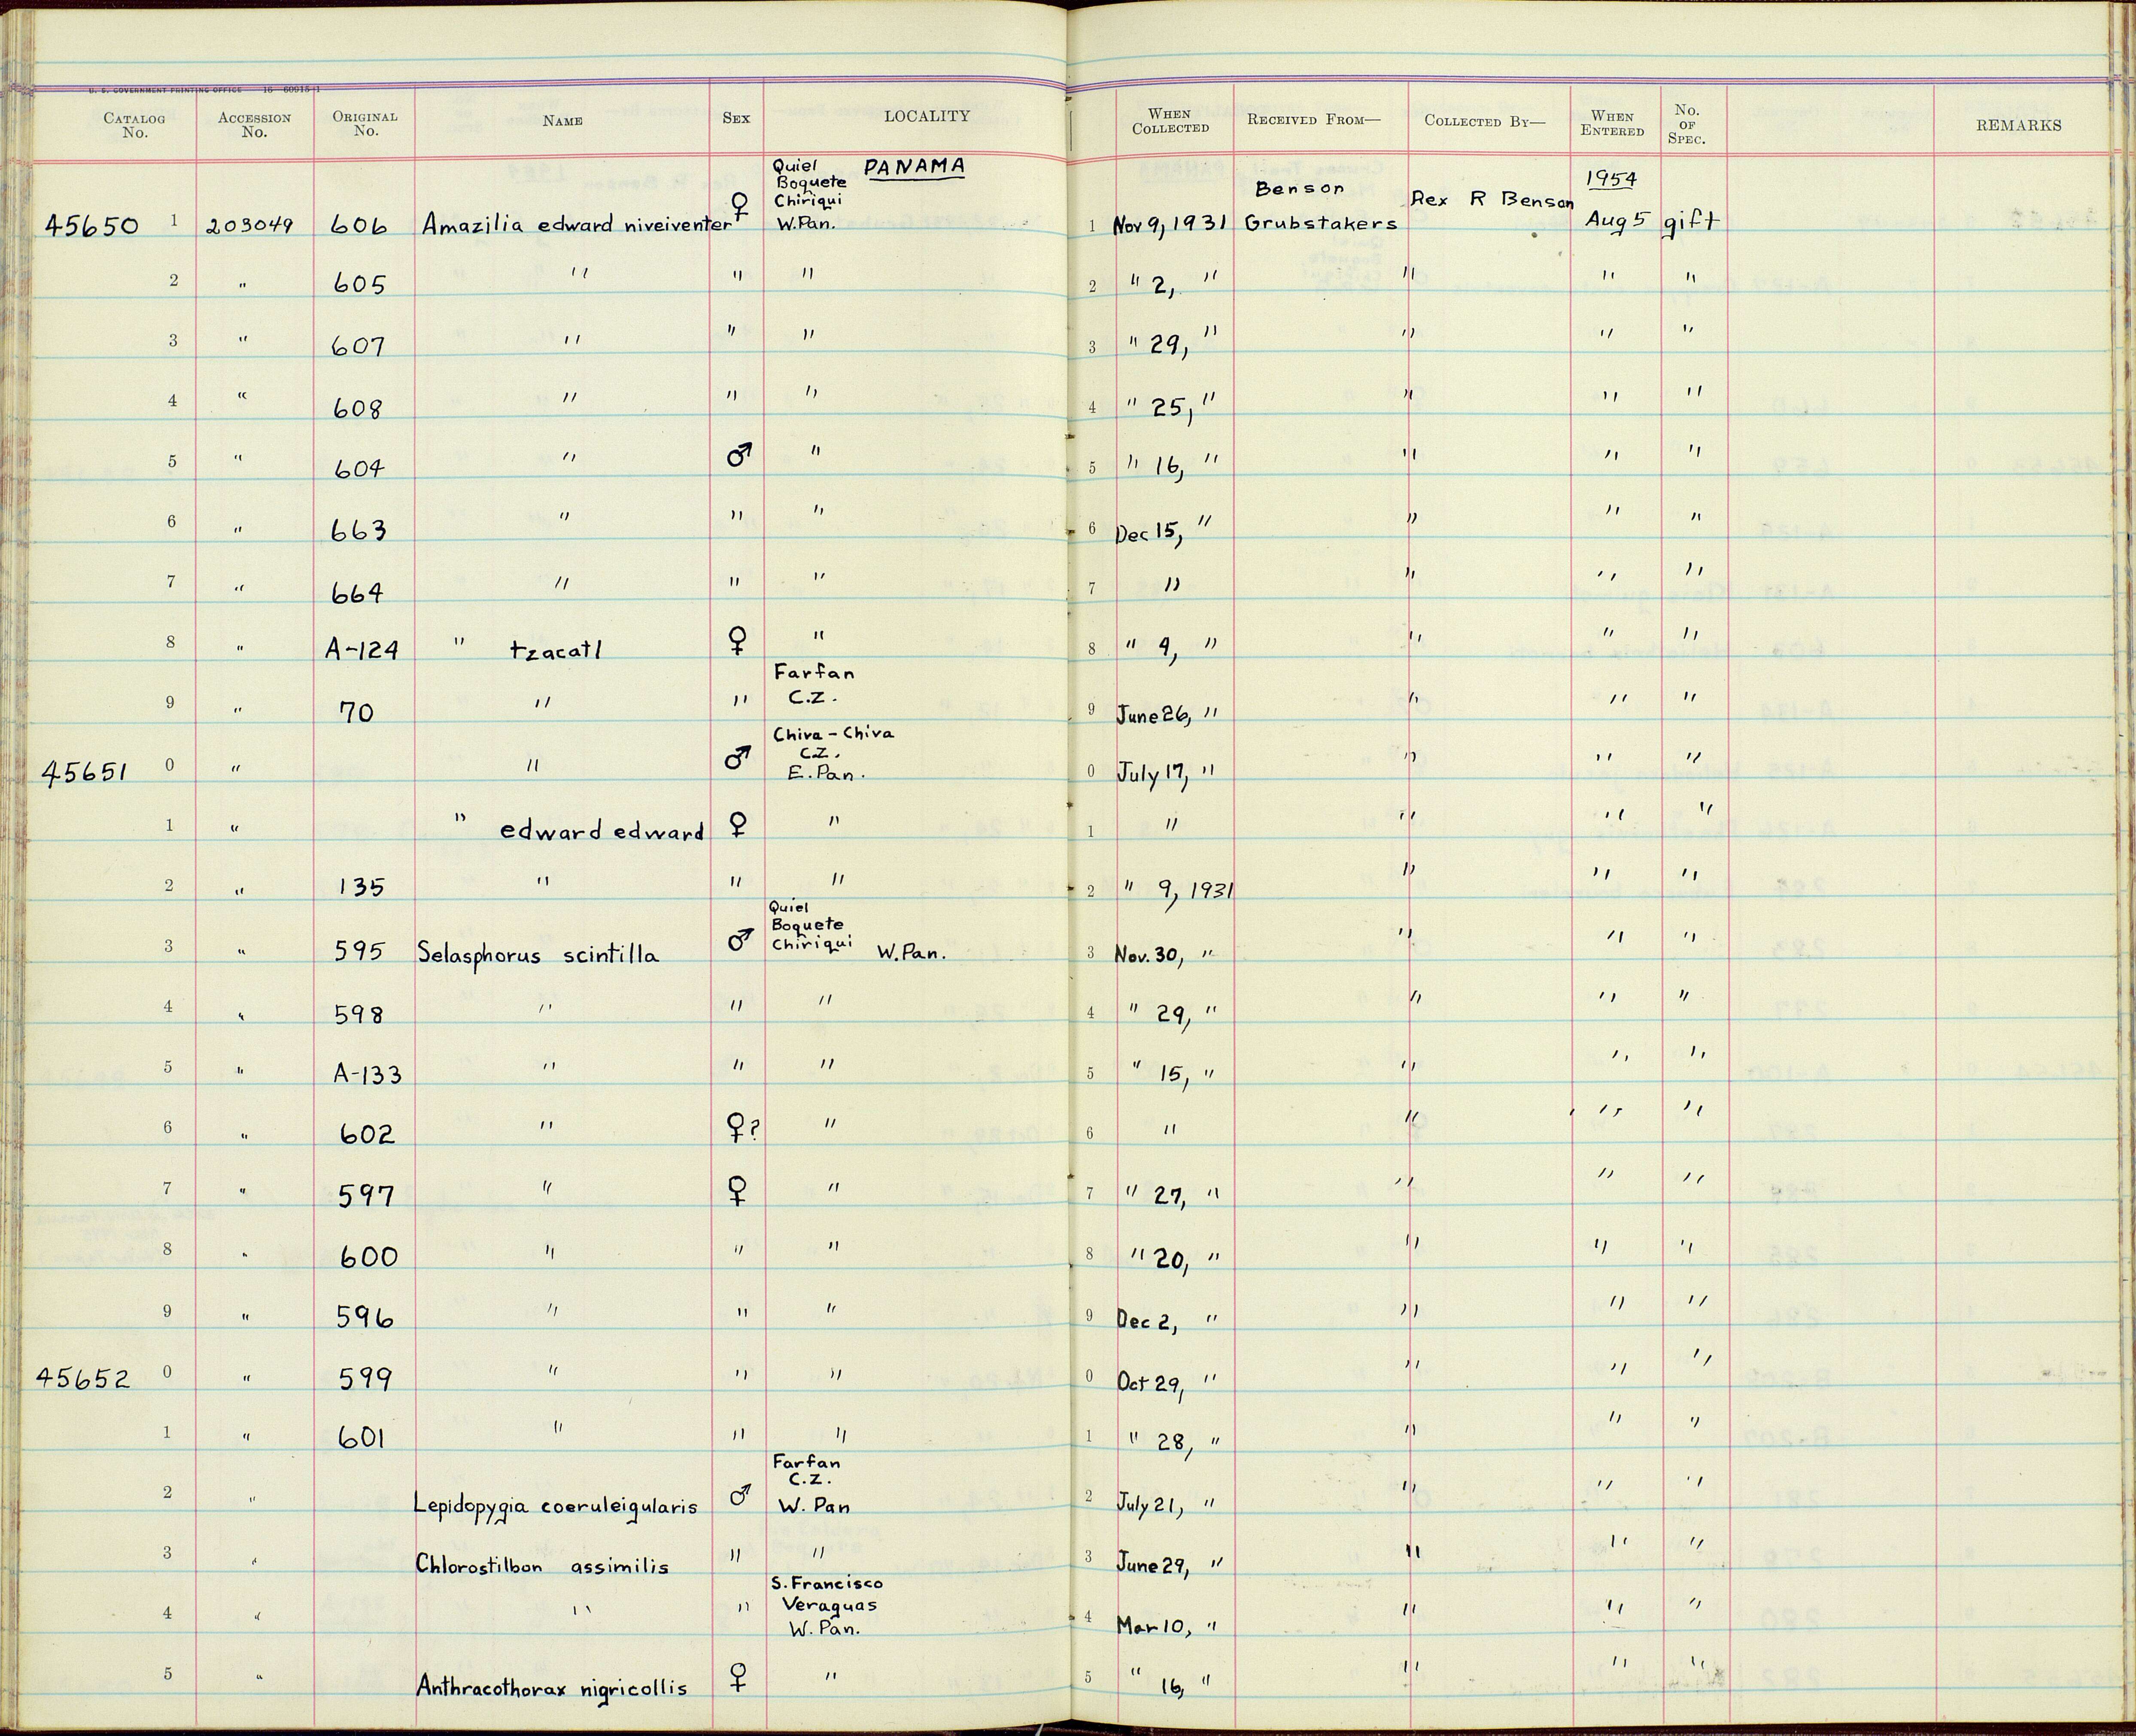 U. S. GOVERNMENT PRINTING OFFICE 16—60915-1
CATALOG No. ACCESSION No. ORIGINAL No. NAME SEX LOCALITY WHEN COLLECTED RECEIVED FROM— COLLECTED BY— WHEN ENTERED No. OF SPEC. REMARKS
Quiel PANAMA
Boquete Benson 1954
Chiriqui Rex R Benson
45650 1 203049 606 Amazilia edward niveiventer ♀ W.Pan. 1 Nov 9, 1931 Grubstakers Aug 5 gift
2 " 605 " " " 2 " 2, " " " "
3 " 607 " " " 3 " 29, " " " "
4 " 608 " " " 4 " 25, " " " "
5 " 604 " ♂ " 5 " 16, " " " "
6 " 663 " " " 6 Dec 15, " " " "
7 " 664 " " " 7 " " " "
8 " A-124 " tzacatl ♀ " 8 " 4, " " " "
Farfan
9 " 70 " " C.Z. 9 June 26, " " " "
Chiva-Chiva
C.Z.
45651 0 " " ♂ E. Pan. 0 July 17, " " " "
1 " " edward edward ♀ " 1 " " " "
2 " 135 " " " 2 " 9, 1931 " " "
Quiel
Boquete
3 " 595 Selasphorus scintilla ♂ Chiriqui W. Pan. 3 Nov. 30, " " " "
4 " 598 " " " 4 " 29, " " " "
5 " A-133 " " " 5 " 15, " " " "
6 " 602 " ♀? " 6 " " " "
7 " 597 " ♀ " 7 " 27, " " " "
8 " 600 " " " 8 " 20, " " " "
9 " 596 " " " 9 Dec 2, " " " "
45652 0 " 599 " " " 0 Oct 29, " " " "
1 " 601 " " " 1 " 28, " " " "
Farfan
C.Z.
2 " Lepidopygia coeruleigularis ♂ W. Pan 2 July 21, " " " "
3 " Chlorostilbon assimilis " " 3 June 29, " " " "
S. Francisco
Veraguas
4 " " " W. Pan. 4 Mar 10, " " " "
5 " Anthracothorax nigricollis ♀ " 5 " 16, " " " "